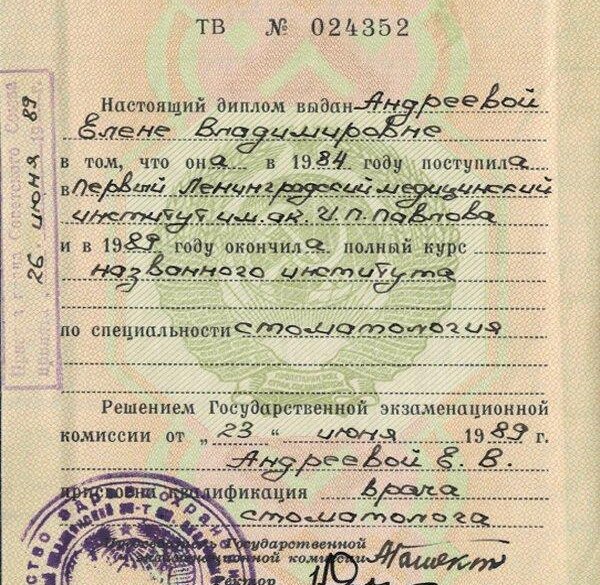 ТВ № 024352
Настоящий диплом выдан Андреевой
Елене Владимировне
в том, что она в 1984 году поступила
в Первый Ленинградский медицинский
институт им. ак. И. П. Павлова
и в 1989 году окончила полный курс
названного института
по специальности стоматология
Решением Государственной экзаменационной
комиссии от „23“ июня 1989 г.
Андреевой Е. В.
присвоена квалификация врача
стоматолога
Председатель Государственной
экзаменационной комиссии
Ректор
26 июня 89